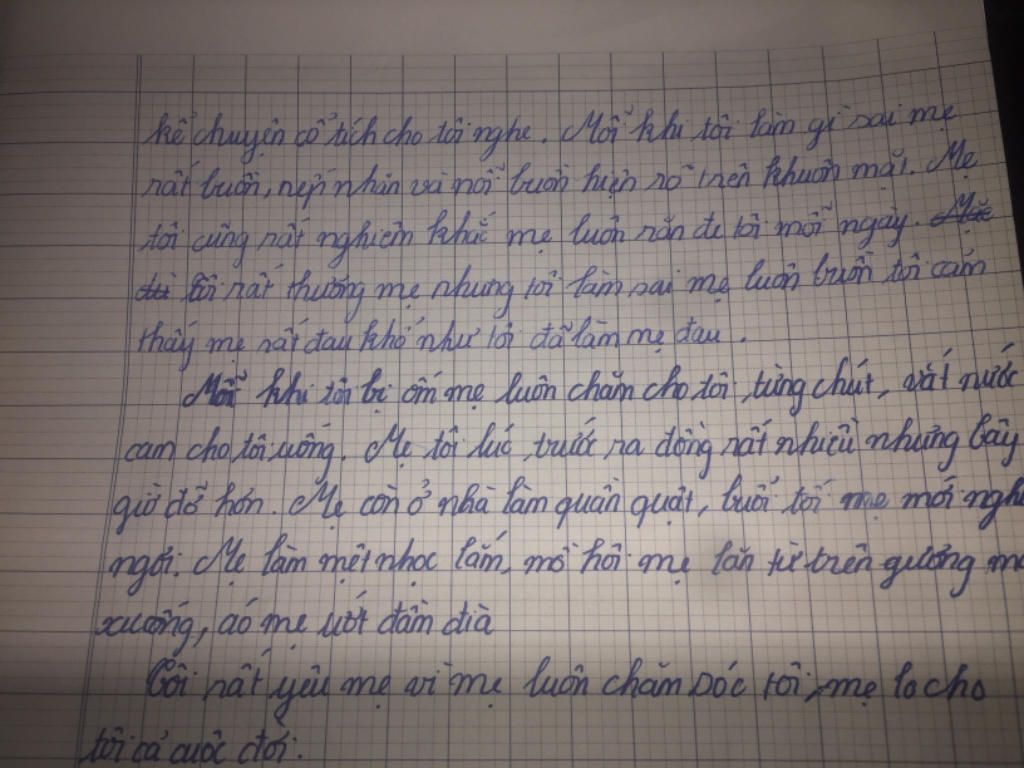 kể chuyện cổ tích cho tôi nghe. Mỗi khi tôi làm gì sai mẹ
rất buồn, nếp nhăn và nỗi buồn hiện rõ trên khuôn mặt. Mẹ
tôi cũng rất nghiêm khắc mẹ luôn răn đe tôi mỗi ngày. Mặc
dù tôi rất thương mẹ nhưng tôi làm sai mẹ luôn buồn tôi cảm
thấy mẹ rất đau khổ như tôi đã làm mẹ đau.
Mỗi khi tôi bị ốm mẹ luôn chăm cho tôi từng chút, vắt nước
cam cho tôi uống. Mẹ tôi lúc trước ra đồng rất nhiều nhưng bây
giờ đỡ hơn. Mẹ còn ở nhà làm quần quật, buổi tối mẹ mới nghỉ
ngơi. Mẹ làm mệt nhọc lắm, mồ hôi mẹ lăn từ trên gương
xuống, áo mẹ ướt đầm đìa
Tôi rất yêu mẹ vì mẹ luôn chăm sóc tôi, mẹ lo cho
tôi cả cuộc đời.